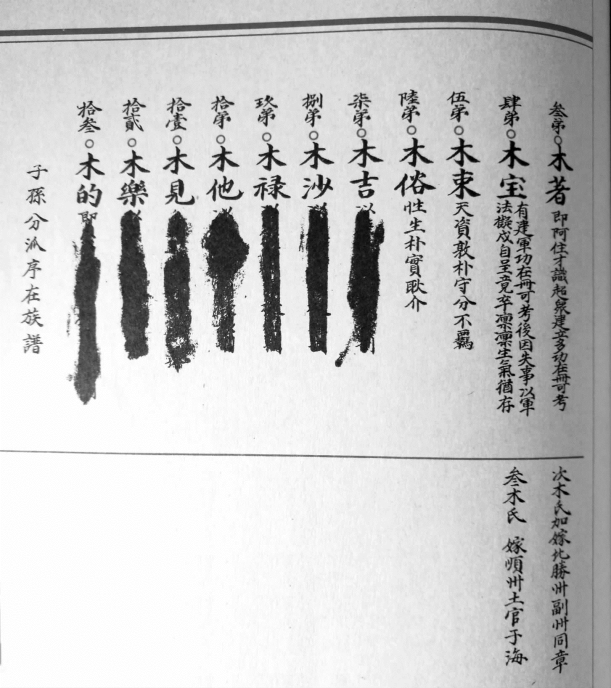 叁弟○木著 即阿住才識超衆建立多功在冊可考
肆弟○木宝 有建軍功在冊可考後因失事以軍
法擬成自呈竟卒凛凛生氣猶存
伍弟○木束 天資敦朴守分不羈
陸弟○木俗 性生朴實耿介
柒弟○木吉 以
捌弟○木沙
玖弟○木禄
拾弟○木他
拾壹○木見
拾貳○木樂
拾叁○木的 即
子孫分派序在族譜
次木氏加嫁北勝州副州同章
叁木氏 嫁順州土官子海